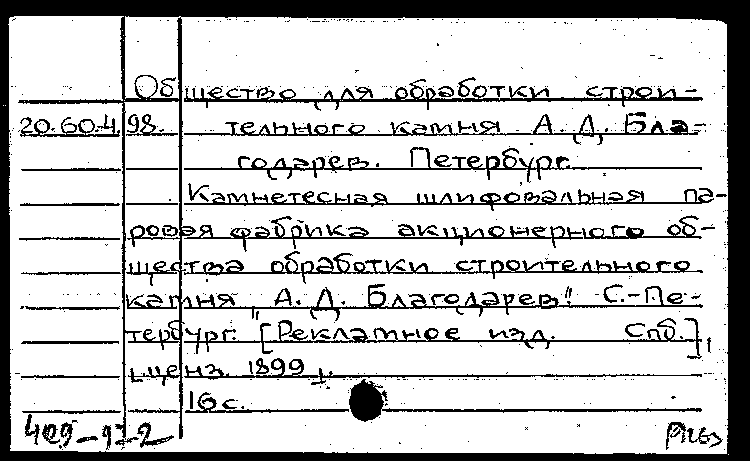 Общество для обработки строи-
20.60.4.98. тельного камня А. Д. Бла-
годарев. Петербург.
Камнетесная шлифовальная па-
ровая фабрика акционерного об-
щества обработки строительного
камня „А. Д. Благодарев". С.-Пе-
тербург. [Рекламное изд. Спб.],
ценз. 1899.
16 с.
409-97-2